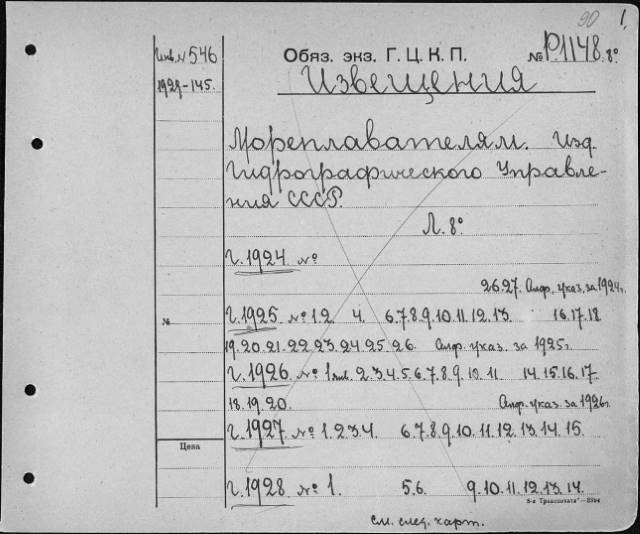 90 1.
Инв. N 546
1929-145.
Обяз. экз. Г. Ц. К. П. № Р.1148. 8°
Извещения
Мореплавателям. Изд.
Гидрографического Управле-
ния СССР.
Л. 8°
г. 1924 №
26.27. Алф. указ. за 1924г.
№ г. 1925 № 1.2 4. 6.7.8.9.10.11.12.13. 16.17.18
19.20.21.22.23.24.25.26. Алф. указ. за 1925г.
г. 1926 № 1 янв. 2.3.4.5.6.7.8.9.10.11 14.15.16.17.
18.19.20. Алф. указ. за 1926г.
г. 1927 № 1.2.3.4. 6.7.8.9.10.11.12.13.14.15.
Цена
г. 1928 № 1. 5.6. 9.10.11.12.13.14.
см. след. карт.